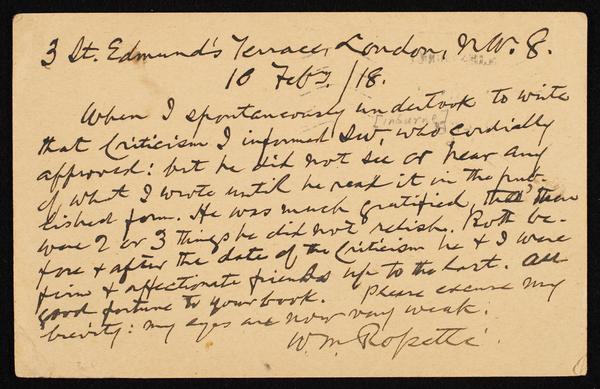 3 St. Edmund's Terrace, London, N.W. 8.
10 Feby. /18.
When I spontaneously undertook to write
[inburne]
that Criticism I informed Sw., who cordially
approved: but he did not see or hear any
of what I wrote until he read it in the pub-
lished form. He was much gratified, tho' there
were 2 or 3 things he did not relish. Both be-
fore & after the date of the Criticism he & I were
firm & affectionate friends up to the last. All
good fortune to your book. Please excuse my
brevity: my eyes are now very weak.
W. M. Rossetti